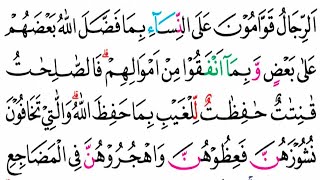 اَلرِّجَالُ قَوَّامُوْنَ عَلَى النِّسَآءِ بِمَا فَضَّلَ اللّٰهُ بَعْضَهُمْ
عَلٰى بَعْضٍ وَّبِمَآ اَنْفَقُوْا مِنْ اَمْوَالِهِمْ ۗ فَالصّٰلِحٰتُ
قٰنِتٰتٌ حٰفِظٰتٌ لِّلْغَيْبِ بِمَا حَفِظَ اللّٰهُ ۗوَالّٰتِيْ تَخَافُوْنَ
نُشُوْزَهُنَّ فَعِظُوْهُنَّ وَاهْجُرُوْهُنَّ فِى الْمَضَاجِعِ